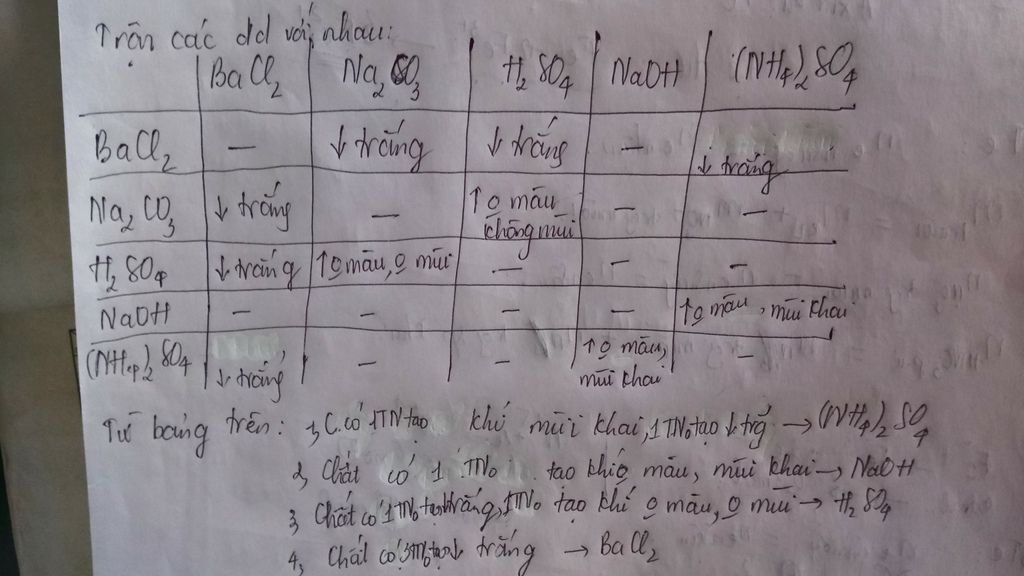 Trộn các dd với nhau:
BaCl2 Na2CO3 H2SO4 NaOH (NH4)2SO4
BaCl2 – ↓ trắng ↓ trắng – ↓ trắng
Na2CO3 ↓ trắng – ↑ o màu – –
không mùi
H2SO4 ↓ trắng ↑ o màu, o mùi – – –
NaOH – – – – ↑ o màu, mùi khai
(NH4)2SO4 ↓ trắng – – ↑ o màu, –
mùi khai
Từ bảng trên: 1, C. có 1TN tạo khí mùi khai, 1TNo tạo ↓ trg → (NH4)2SO4
2, Chất có 1 TNo tạo khí o màu, mùi khai → NaOH
3, Chất có 1TNo tạo ↓ trắng, 1TNo tạo khí o màu, o mùi → H2SO4
4, Chất có 3TNo tạo ↓ trắng → BaCl2